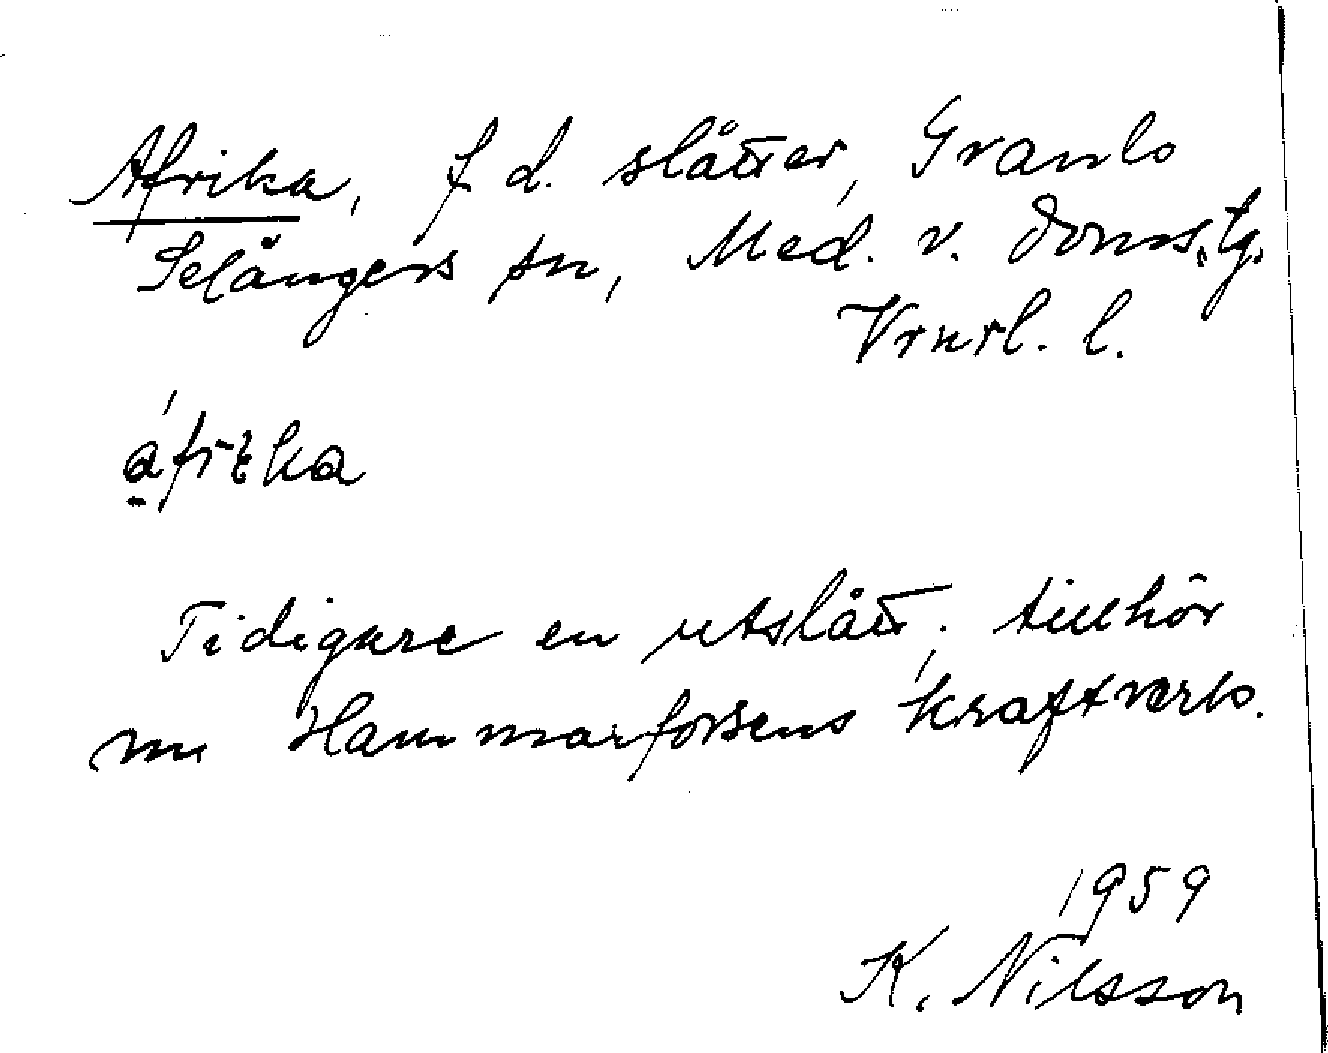 Afrika, f. d. slåtter, Granlo
Selångers sn, Med. v. doms. tg.
Vrnrl. l.
áfrika
Tidigare en utslått, tillhör
nu Hammarforsens kraftverk.
1959
K. Nilsson